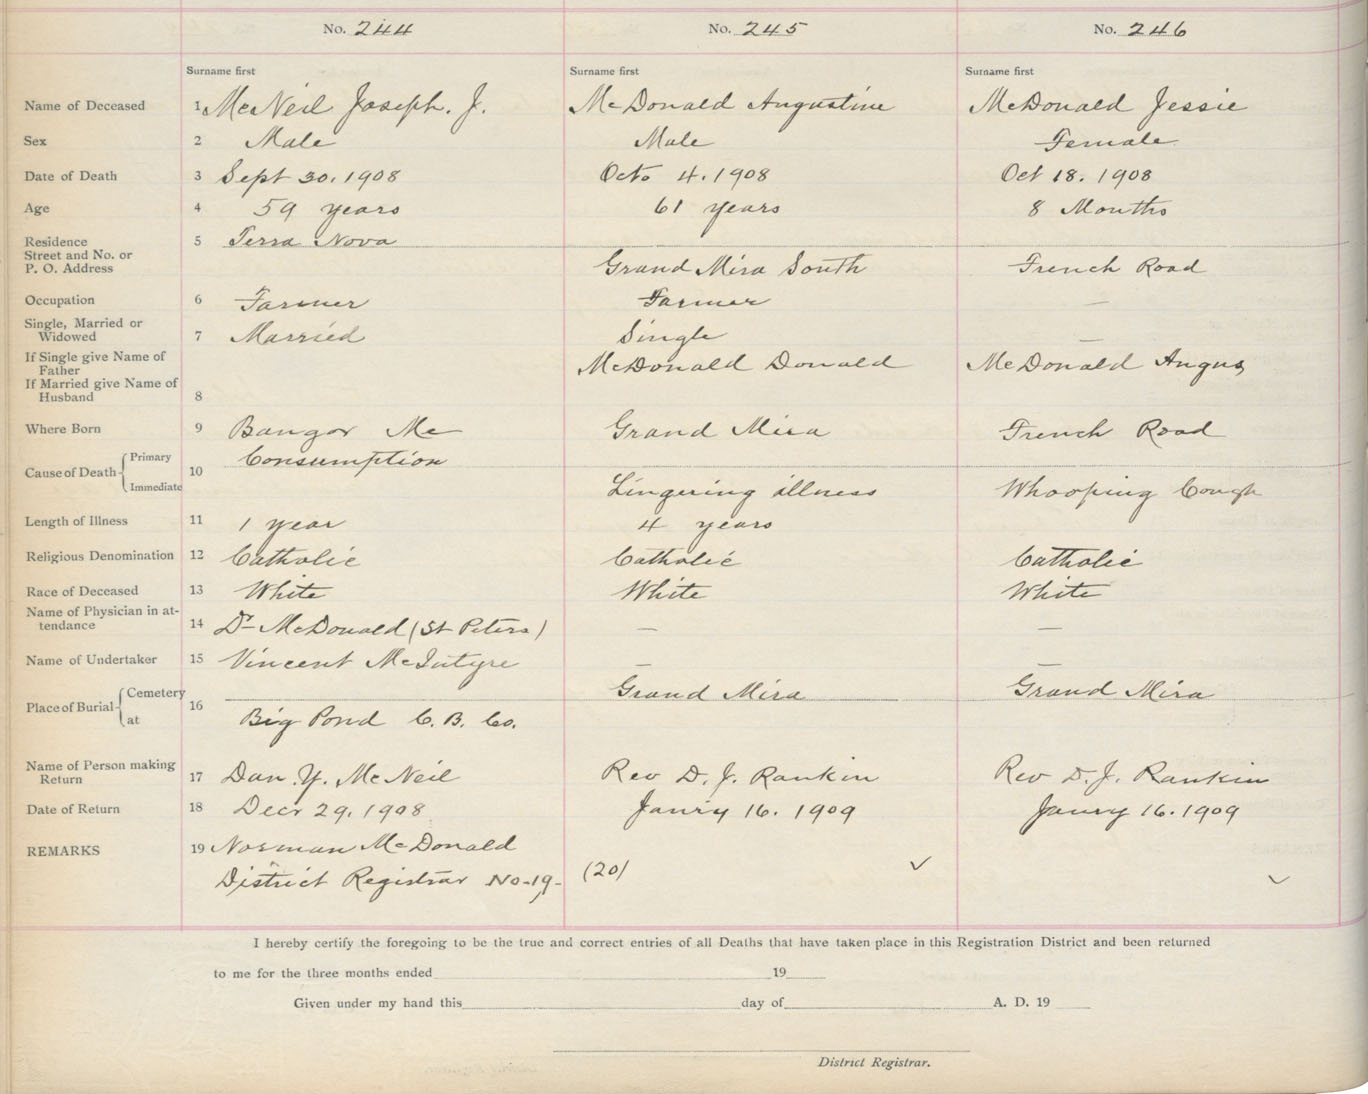 No. 244 No. 245 No. 246
Surname first Surname first Surname first
Name of Deceased 1 McNeil Joseph. J. McDonald Augustine McDonald Jessie
Sex 2 Male Male Female
Date of Death 3 Sept 30. 1908 Octo 4. 1908 Oct 18. 1908
Age 4 59 years 61 years 8 Months
Residence 5 Terra Nova
Street and No. or
P. O. Address Grand Mira South French Road
Occupation 6 Farmer Farmer —
Single, Married or
Widowed 7 Married Single —
If Single give Name of
Father McDonald Donald McDonald Angus
If Married give Name of
Husband 8
Where Born 9 Bangor Me Grand Mira French Road
Cause of Death Primary Consumption
10
Immediate Lingering illness Whooping Cough
Length of Illness 11 1 year 4 years
Religious Denomination 12 Catholic Catholic Catholic
Race of Deceased 13 White White White
Name of Physician in at-
tendance 14 Dr McDonald (St Peters) — —
Name of Undertaker 15 Vincent McIntyre — —
Place of Burial Cemetery Grand Mira Grand Mira
16
at Big Pond C. B. Co.
Name of Person making
Return 17 Dan. Y. McNeil Rev D. J. Rankin Rev D. J. Rankin
Date of Return 18 Decr 29, 1908 Janry 16. 1909 Janry 16. 1909
REMARKS 19 Norman McDonald
District Registrar No-19- (20) ✓ ✓
I hereby certify the foregoing to be the true and correct entries of all Deaths that have taken place in this Registration District and been returned
to me for the three months ended 19
Given under my hand this day of A. D. 19
District Registrar.